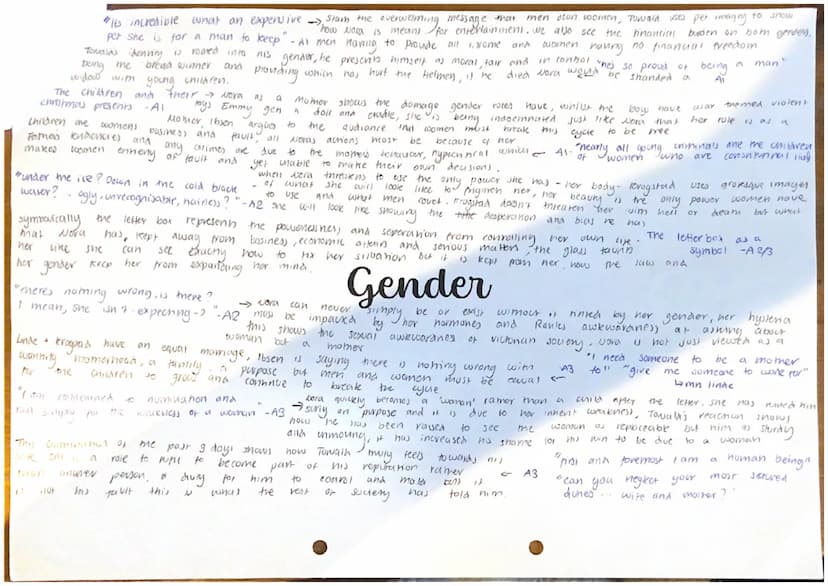 "Its incredible what an expensive → Starts the overwelming message that men own women, Torvald uses pet imagry to show
pet she is for a man to keep" - A1 how Nora is means for entertainment. We also see the financial burden on both genders,
men having to provide all income and women having no financial freedom
Torvalds identity is rooted into his gender, he presents himself as moral, fair and in control "he's so proud of being a man"
being the bread winner and providing which has hurt the Helmers, if he died Nora would be stranded a A1
widow with young children.
The children and their → Nora as a Mother shows the damage gender roles have, whilst the boys have war themed violent
christmas presents - A1 toys Emmy gets a doll and cradle, she is being indoctrinated just like Nora that her role is as a
Mother, Ibsen argues to the audience that women must break this cycle to be free
Children are womens business and fault, all Noras actions must be because of her
Fathers tendencies and any crimes are due to the mothers behaviour, hypocritical which ← A1 - "nearly all young criminals are the children
makes women entirely at fault and yet unable to make their own decisions. of women who are constitutional liars
when Nora threatens to use the only power she has - her body - Krogstad uses grotesque images
"under the ice? Down in the cold black - of what she will look like to frighten her, her beauty is the only power women have
water? .. ugly, unrecognisable, hairless?" - A2 to use and what men covet. Krogstad doesn't threaten her with hell or death but what
she will look like showing the desperation and bias he has
symbolically the letter box represents the powerlessness and seperation from controlling her own life. The letterbox as a
that Nora has, kept away from business, economic affairs and serious matters, the glass symbol - A2/3
her like she can see exactly how to fix her situation but it is kept from her, how the law and
her gender keep her from expanding her mind.
Gender
"theres nothing wrong, is there?
I mean, she isn't - expecting - ?" - A2 → Nora can never simply be or exist without it linked by her gender, her hysteria
must be impacted by her hormones and Ranks awkwardness at asking about
this shows the sexual awkwardness of victorian society. Nora is not just viewed as a
woman but a mother
Linde + Krogstad have an equal marriage, Ibsen is saying there is nothing wrong with "I need someone to be a mother
wanting motherhood, a family, a purpose but men and women must be equal ← A3 to!" "give me someone to work for"
for the children to grow and continue to break the cycle ↳ mrs linde
"I am condemned to humiliation and → Nora quickly becomes a 'woman' rather than a child after the letter, she has ruined him
ruin simply for the weakness of a woman" - A3 on purpose and it is due to her inherent weakness, Torvald's reaction shows
how he has been raised to see the woman as replaceable but him as sturdy
and unmoving, it has increased his shame for his ruin to be due to a woman
The culmination of the past 3 days shows how Torvald truly feels towards his
wife, still is a role to fulfil to become part of his reputation rather "first and foremost I am a human being"
than another person, a duty for him to control and mold but it ← A3 "can you neglect your most sacred
is not his fault this is what the rest of society has told him. duties ... wife and mother?"